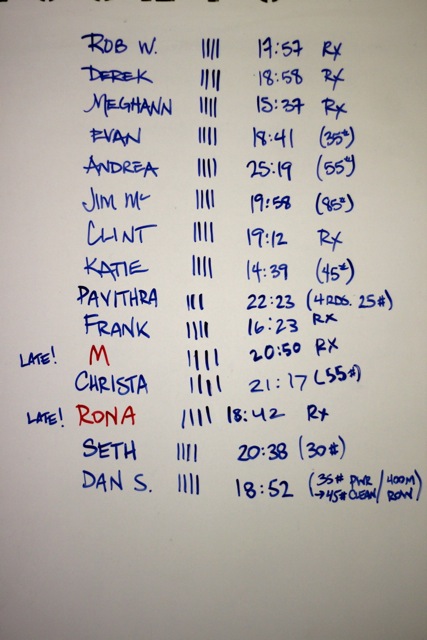 ROB W. |||| 17:57 Rx
DEREK |||| 18:58 Rx
MEGHANN |||| 15:37 Rx
EVAN |||| 18:41 (35#)
ANDREA |||| 25:19 (55#)
JIM Mc |||| 19:58 (85#)
CLINT |||| 19:12 Rx
KATIE |||| 14:39 (45#)
PAVITHRA ||| 22:23 (4 RDS. 25#)
FRANK |||| 16:23 Rx
LATE! M |||| 20:50 Rx
CHRISTA |||| 21:17 (55#)
LATE! RONA |||| 18:42 Rx
SETH |||| 20:38 (30#)
DAN S. |||| 18:52 (35# PWR / 400M
→45# CLEAN / ROW)